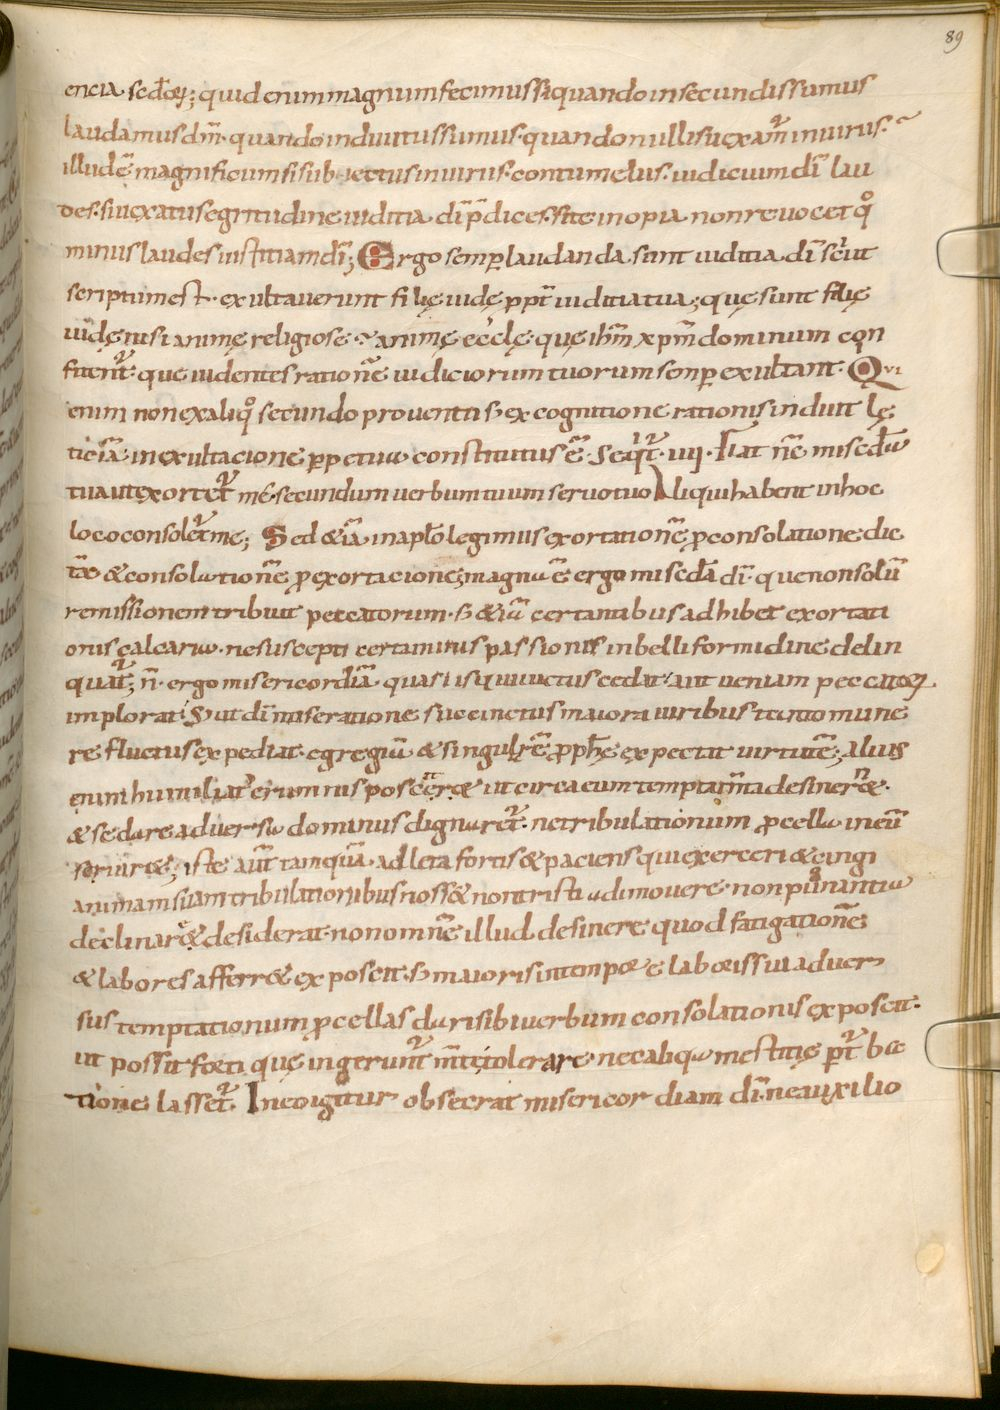 89
encia sedēꝝ; quid enim magnum fecimus si quando in secundis sumus
laudamus dm̄. quando in divitiis sumus. quando nullis uexam̄ iniuriis.
illud ē magnificum si subiectus iniuriis. contumeliis. iudicium dī lau
des. si uexatus egritudine iuditia dī p̄dices. si te inopia non reuocet qͦ
minus laudes iustitiam dī; Ergo semp̄ laudanda sunt iuditia dī sicut
scriptum est. exultauerunt filię iudę ꝓpt̄ iuditia tua; quę sunt filię
iudę nisi animę religiose animę ecclę que ihm̄ xpm̄ dominum con
fitent̄. que uidentes rationē iudiciorum tuorum semp̄ exultant. Qui
enim non ex aliqͦ secundo prouentu s; ex cognitione rationis induit lę
ticiā in exultacione ꝑpetua constitutus ē. Seqit̄. iiij. Fiat nē misedīa
tua ut exortet̄ mē secundum uerbum tuum seruo tuo Aliqui habent in hoc
loco consolet̄ me; Sed &iā in aplō legimus exortationē ꝓ consolatione dic
tā & consolationē ꝓ exortacione; magna ē ergo misedīa dī. que non solū
remissionem tribuit peccatorum. s; &iā certantibus adhibet exortati
onis calcaria. ne suscepti certaminis passionis in belli formidine delin
quat̄; n̄ ergo misericordiā quasi is qui uictus cedat aut ueniam peccatoꝝ
implorat. s; ut dī miseratione succinctus maiora uiribus tanto mune
re fluctus expediat. egregiā & singulrē ꝓph̄e expectat uirtutē; Alius
enim humiliat̄ erumnis posceret ut circa eum temptam̄ta desiner&.
& sedare aduersa dominus dignaret̄. ne tribulationum ꝓcella in eū
seruir&; iste aūt tanquā adleta fortis & paciens qui exerceri & cingi
animam suam tribulationibus noss& non tristia dimouere. non pugnantia
declinare & desiderat. non omnē illud desinere quod fatigationē
& labores afferr& exposcit. s; maioris intemperie laboris sui aduer
sus temptationum ꝓcellas dari sibi uerbum consolationis exposcit.
ut possit forti que ingerunt̄ mte tolerare. nec aliqua mestitię pt̄ bac
tione lasset̄. Ideo igitur obsecrat misericordiam dī. ne auxilio